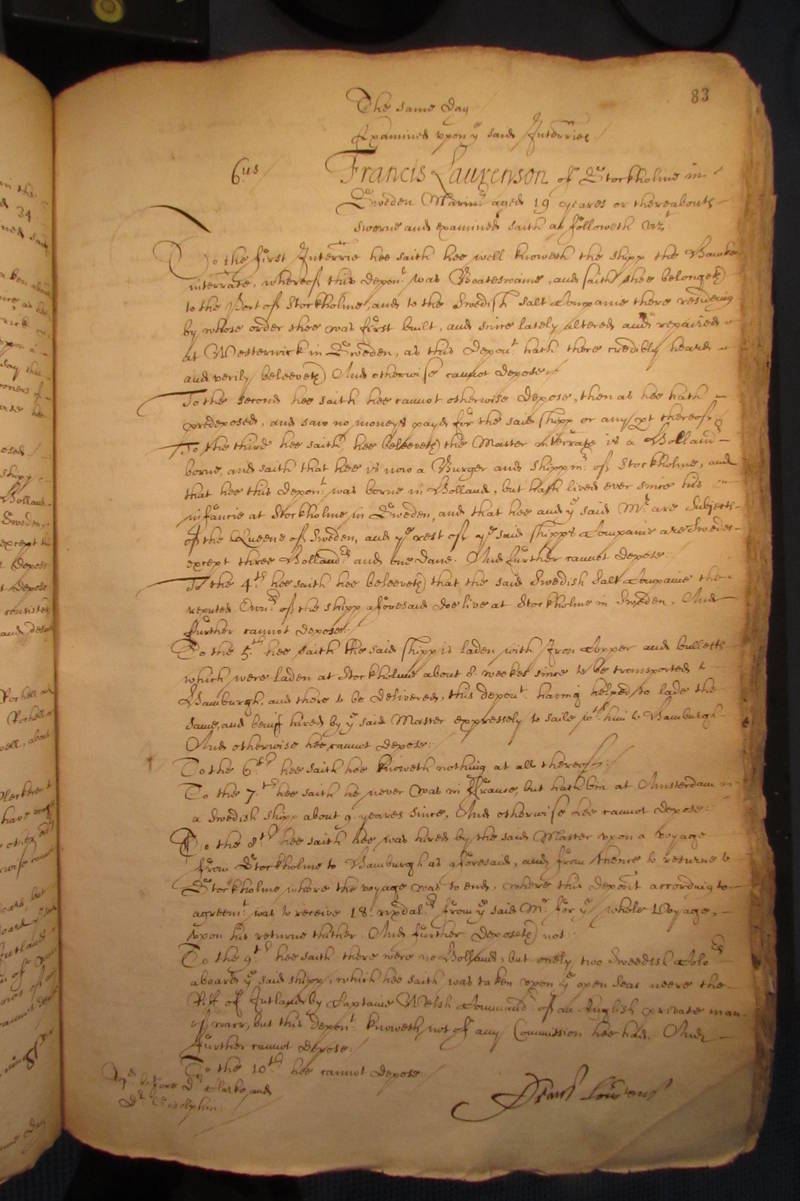 83
The same day
Examined upon ye said Interries
6us
Francis Laurenson of Stockholme in
Sweden Marinr aged 19 yeares or thereabouts
sworne and examined saith as followeth vizt
To the first Interrie hee saith hee well knoweth the shipp the
interrate, whereof this depont was Boateswaine, and saith shee belongeth
to the Port of Stockholme, and to the Swedish Salt Companie there residing
by whose order shee was first built, and since lately altered and repaired
at Westerwick in Sweden, as this depont hath there credibly heard
and verily beleeveth, And otherwise cannot depose
To the second hee saith hee cannot otherwise depose, then as hee hath
predeposed, and saw no moneys payd for the said shipp or any pt thereof
To the third hee saith hee beleeveth the Master interrate is a Holland
borne, and saith that hee is now a Burger and of Stockholme, and
that hee this depont was borne in Holland, but hath lived ever since his
infancie at Stockholme in Sweden, and that hee and ye said Mr are Subjects
of the Queene of Sweden, and ye rest of ye said shipps Companie are Swedes
except three Hollandrs and one Dane. And further cannot depose
To the 4th hee saith hee beleeveth that the said Swedish Salt Companie the
reputed Ownrs of the shipp aforesaid doe live at Stockholme in Sweden, And
further cannot depose
To the 5th hee saith the said shipp is laden with Iron Copper and bulletts
which were laden at Stockholme about 8 weekes since to be transported to
Hamburgh, and there to be delivered, this depont having helped to lade the
same, and being hired by ye said Master expressely to saile wth him to Hamburgh
And otherwise hee cannot depose
To the 6th hee saith hee knoweth nothing at all thereof
To the 7th hee saith he never was in France, but hath bin at Amsterdam in
a Swedish shipp about 9 yeares since, And otherwise hee cannot depose
To the 8th hee saith hee was hired by the said Master upon a voyage
from Stockholme to Hamburgh as aforesaid, and from thence to returne to
Stockholme where the voyage was to end, where this deponent according to
agreemt was to receive 18 rixdalrs from ye said Mr for ye whole voyage,
upon his returne thither. And further deposeth not
To the 9th hee saith there were no Hollands, but onely two Sweedish
aboard ye said shipp, which hee saith was taken upon ye open Seas neere the
Riff of Jutland by Captaine Welsh Commandr of an English private man
of warr, but this depont knoweth not of any Commission hee had. And
further cannot depose
To the 10th hee cannot depose
before Dr Clarke and
Dr